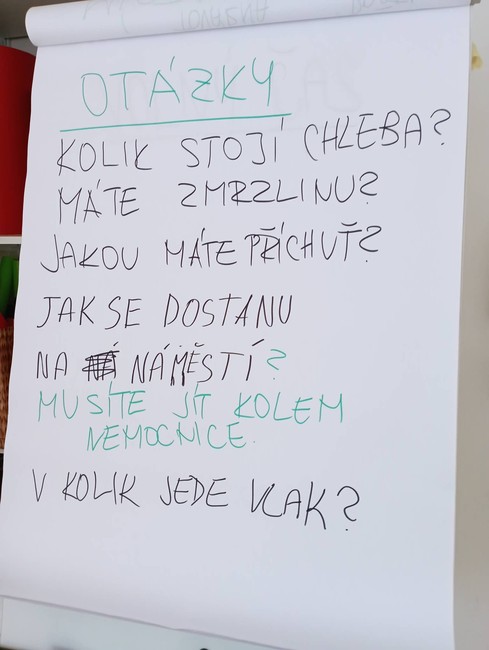 OTÁZKY
KOLIK STOJÍ CHLEBA?
MÁTE ZMRZLINU?
JAKOU MÁTE PŘÍCHUŤ?
JAK SE DOSTANU
NA NÁMĚSTÍ?
MUSÍTE JÍT KOLEM
NEMOCNICE.
V KOLIK JEDE VLAK?